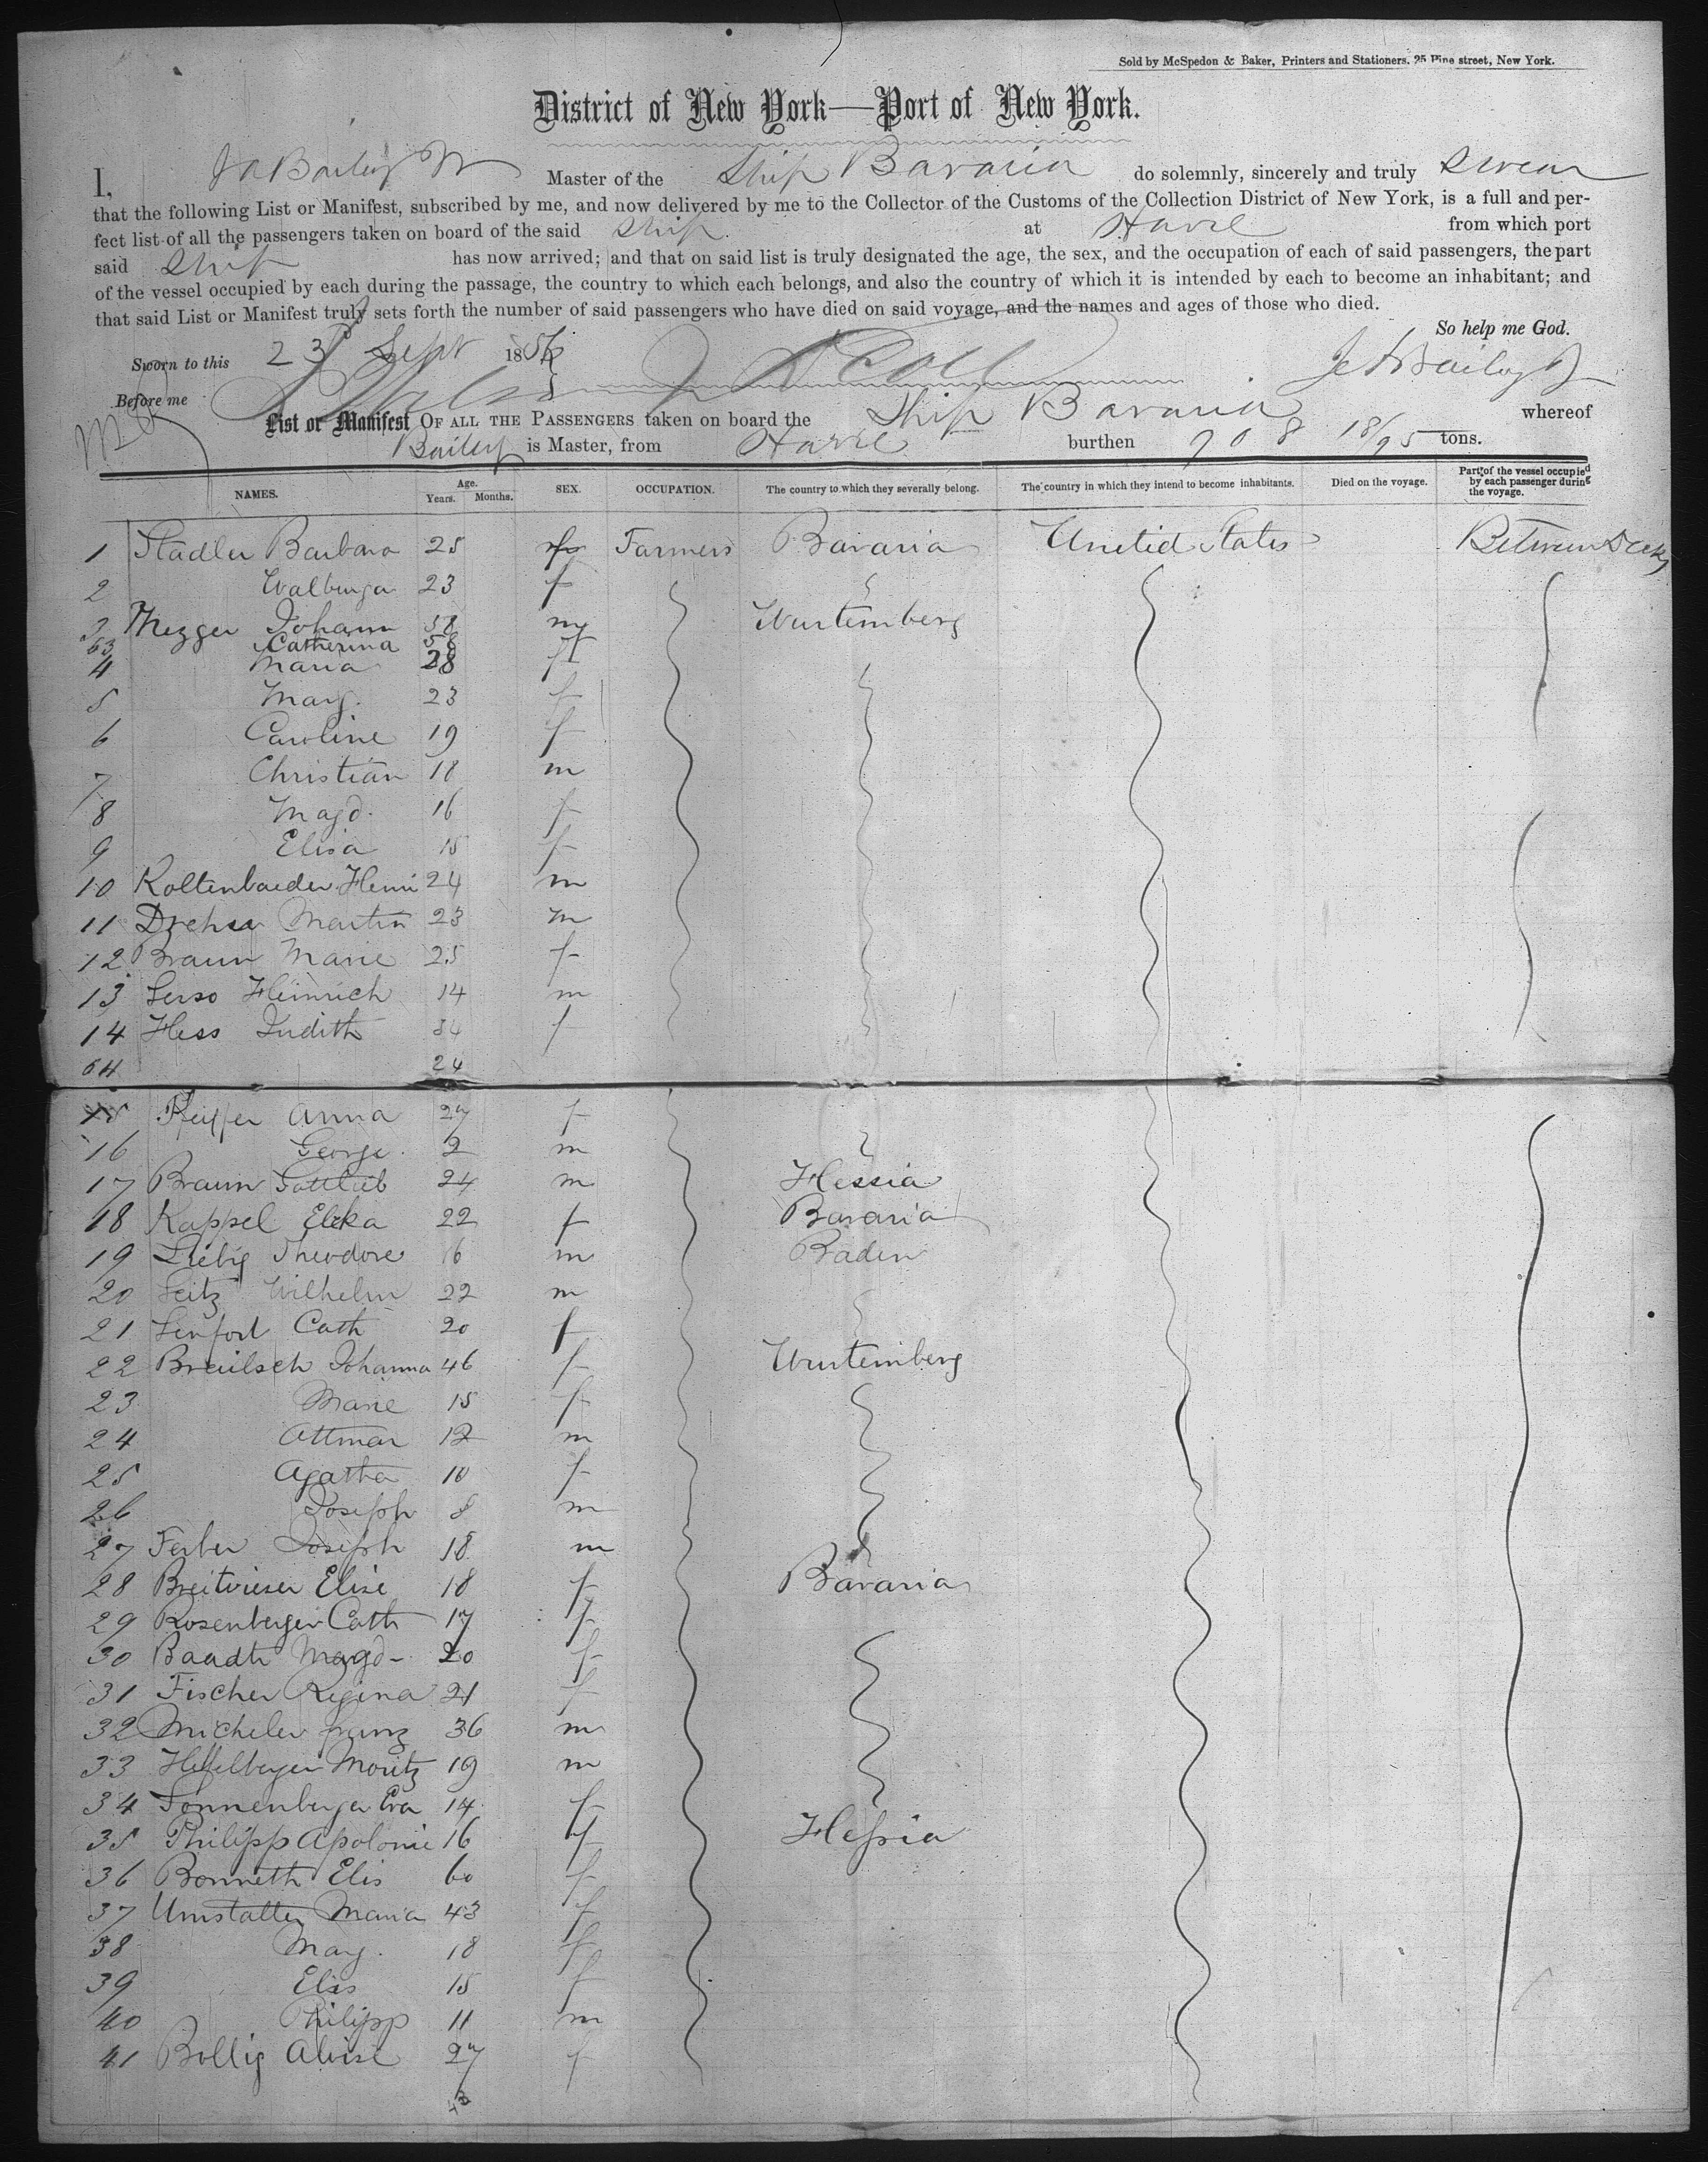 Sold by McSpedon & Baker, Printers and Stationers, 25 Pine street, New York.
District of New York—Port of New York.
I, Master of the Ship Bavaria do solemnly, sincerely and truly swear
that the following List or Manifest, subscribed by me, and now delivered by me to the Collector of the Customs of the Collection District of New York, is a full and per-
fect list of all the passengers taken on board of the said Ship at Havre from which port
said Ship has now arrived; and that on said list is truly designated the age, the sex, and the occupation of each of said passengers, the part
of the vessel occupied by each during the passage, the country to which each belongs, and also the country of which it is intended by each to become an inhabitant; and
that said List or Manifest truly sets forth the number of said passengers who have died on said voyage, and the names and ages of those who died.
So help me God.
Sworn to this 23 Sept 1856
Before me
List or Manifest OF ALL THE PASSENGERS taken on board the Ship Bavaria whereof
Bailey is Master, from Havre burthen 908 18/95 tons.
NAMES. Age. Years. Months. SEX. OCCUPATION. The country to which they severally belong. The country in which they intend to become inhabitants. Died on the voyage. Part of the vessel occupied by each passenger during the voyage.
1 Stadler Barbara 25 f Farmers Bavaria United States Between Decks
2 Walburga 23 f
3 Mezger Johann 58 m Wurtemberg
63 Catherina 58 f
4 Maria 28 f
5 Marg. 23 f
6 Caroline 19 f
7 Christian 18 m
8 Magd. 16 f
9 Elisa 15 f
10 24 m
11 Martin 23 m
12 Braun Marie 25 f
13 Heinrich 14 m
14 Hess Judith 34 f
64 24
15 Anna 27 f
16 George 2 m
17 Braun Gottlieb 24 m Hessia
18 Kappel 22 f Bavaria
19 Liebig Theodore 16 m Baden
20 Seitz Wilhelm 22 m
21 Cath 20 f
22 Johanna 46 f Wurtemberg
23 Marie 15 f
24 Attmar 12 m
25 Agatha 10 f
26 Joseph 8 m
27 Ferber Joseph 18 m
28 Elise 18 f Bavaria
29 Rosenberger Cath 17 f
30 Baadte Magd- 20 f
31 Fischer Regina 21 f
32 Micheler franz 36 m
33 Moritz 19 m
34 Sonnenberger Eva 14 f
35 Philipp Apolonie 16 f Hessia
36 Bonneth Elis 60 f
37 Umstatter Maria 43 f
38 Marg. 18 f
39 Elis 15 f
40 Philipp 11 m
41 Bollig 27 f